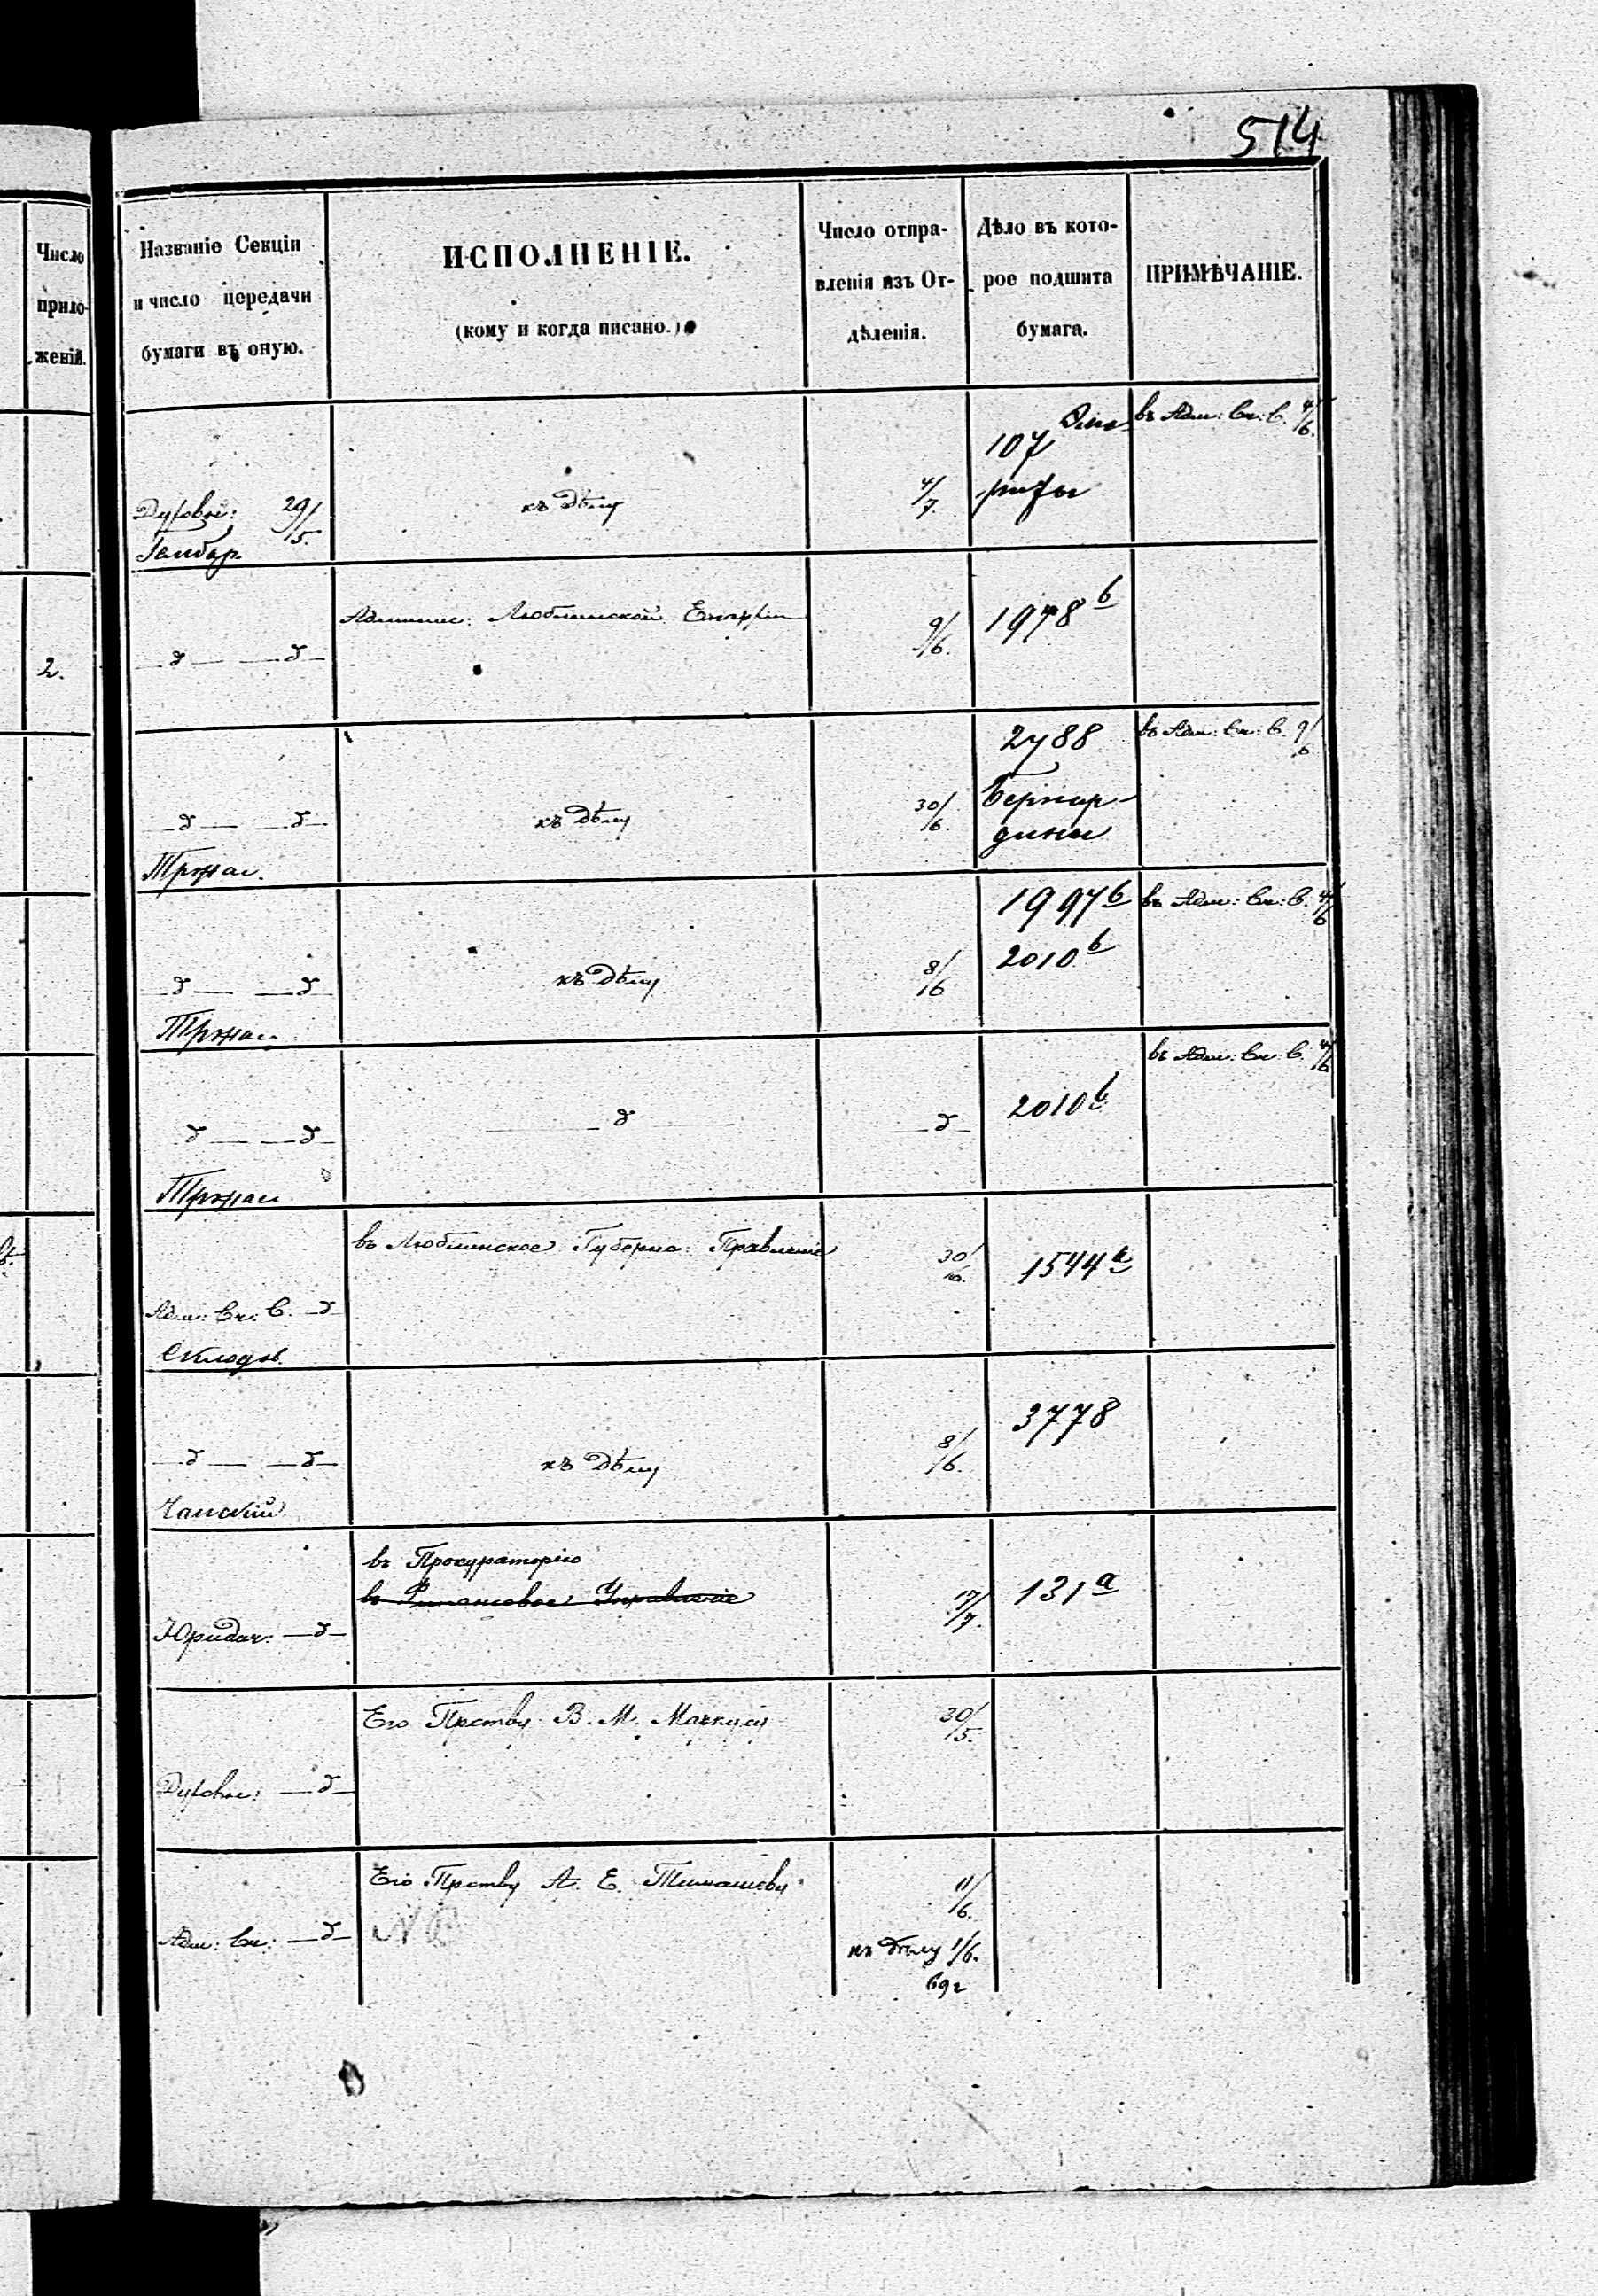 514
Число
прило-
женій.
Названіе Секціи
и число передачи
бумаги въ оную.
ИСПОЛНЕНІЕ.
(кому и когда писано.)
Число отпра-
вленія изъ От-
дѣленія.
Дѣло въ кото-
рое подшита
бумага.
ПРИМѢЧАНІЕ.
Духовн: 29/5.
къ дѣлу
4/7.
107
въ Адм: Вн: В. 4/6.
2.
— д — — д —
Админис: Люблинской Епархіи
9/6.
1978 b
— д — — д —
Тржас.
къ дѣлу
30/6.
2788
Бернар-
дины
въ Адм: Вн: В. 9/6
— д — — д —
Тржас
къ дѣлу
8/6
1997 b
2010 b
въ Адм: Вн: В. 4/6
— д — — д —
Тржас
— д —
— д —
2010 b
въ Адм: Вн: В. 4/6
Адм: Вн: В. — д —
Склодов.
въ Люблинское Губерно: Правленіе
30/10.
1544 a
— д — — д —
къ дѣлу
8/6.
3778
Юридич: — д —
въ Прокураторію
въ Финансовое Управленіе
17/7.
131 a
Духовн: — д —
Его Прству В. М. Маркусу
30/5.
Адм: Вн: — д —
Его Прству А. Е. Тимашеву
11/6.
къ дѣлу 1/6.
69 г